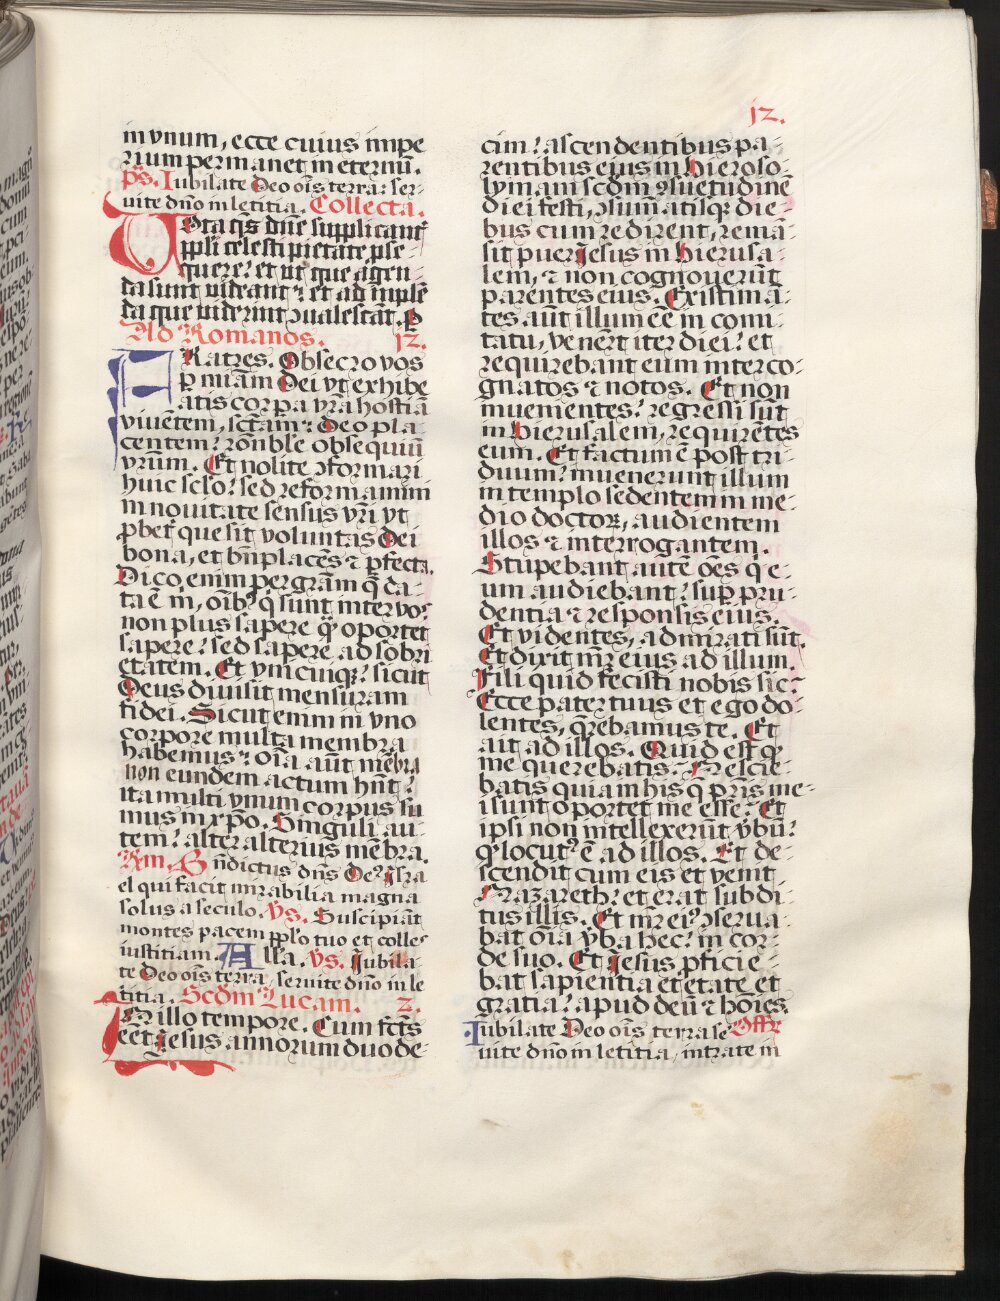 12.
in vnum, ecce cuius impe
rium permanet in eternū.
ps. Iubilate deo oīs terra: ser-
uite dño in letitia. Collecta.
Vota qs dñe supplicant̄
ppłi celesti pietate p̱se-
quere: et ut que agen-
da sunt uideant ⁊ et ad implē
da que uiderint ↄualescāt. p̱
Ad Romanos. 12.
FRatres. Obsecro vos
p̱ mīam dei vt exhibe
atis corpa vr̄a hostiā
viuētem, sctam: deo pla-
centem: rōnble obsequiū
vrūm. Et nolite ↄformari
huic sclo: sed reformamini
in nouitate sensus vr̄i vt
p̱bet̄ que sit voluntas dei
bona, et bn̄placēs ⁊ p̱fecta.
Dico enim per gr̄am q̄ da-
ta ē m̄, oīb: q̄ sunt inter vos
non plus sapere q̄ȝ oportet
sapere: sed sapere ad sobri
etatem. Et vnicuiqȝ: sicut
Deus diuisit mensuram
fidei. Sicut enim in vno
corpore multa membra
habemus: oīa aūt mēbra
non eundem actum hn̄t:
ita multi vnum corpus su
mus in xp̄o. Singuli au-
tem: alter alterius mēbra.
Rm. Bn̄dictus dn̄s De⁹ isra
el qui facit mirabilia magna
solus a seculo. vs. Suscipiāt
montes pacem pplo tuo et colles
iustitiam. Alla. vs. Iubila-
te deo oīs terra, seruite dño in le
titia. Scdm Lucam. 2.
IN illo tempore. Cum fcts
eēt iesus annorum duode-
cim: ascendentibus pa-
rentibus eius in hieroso-
lymam scdm ↄsuetudinē
diei festi, ↄsūmatisqȝ die-
bus cum redirent, remā-
sit puer iesus in hierusa-
lem, ⁊ non cognouerūt
parentes eius. Existimā-
tes aūt illum eē in comi-
tatu, venert iter diei: et
requirebant eum inter co-
gnatos ⁊ notos. Et non
inuenientes: regressi sūt
in hierusalem, requirētes
eum. Et factum ē post tri-
duum: inuenerunt illum
in templo sedentem in me-
dio doctoꝝ, audientem
illos ⁊ interrogantem.
Stupebant aute oēs q̄ e-
um audiebant: sup̱ pru-
dentia ⁊ responsis eius.
Et videntes, admirati sūt.
Et dixit mr̄ eius ad illum.
Fili quid fecisti nobis sic:
Ecce pater tuus et ego do-
lentes, q̄rebamus te. Et
ait ad illos. Quid est qȝ
me querebatis: Nescie-
batis quia in his q̄ pr̄is me-
i sunt oportet me esse: Et
ipsi non intellexerūt v̄bū:
qȝ locut⁹ ē ad illos. Et de-
scendit cum eis et venit
Nazareth: et erat subdi-
tus illis. Et mr̄ ei⁹ ↄserua-
bat oīa v̄ba hec: in cor-
de suo. Et iesus p̱ficie-
bat sapientia et etate et
gratia: apud deū ⁊ hoīes.
Iubilate Deo oīs terra se Offr
uite dño in letitia, intrate in